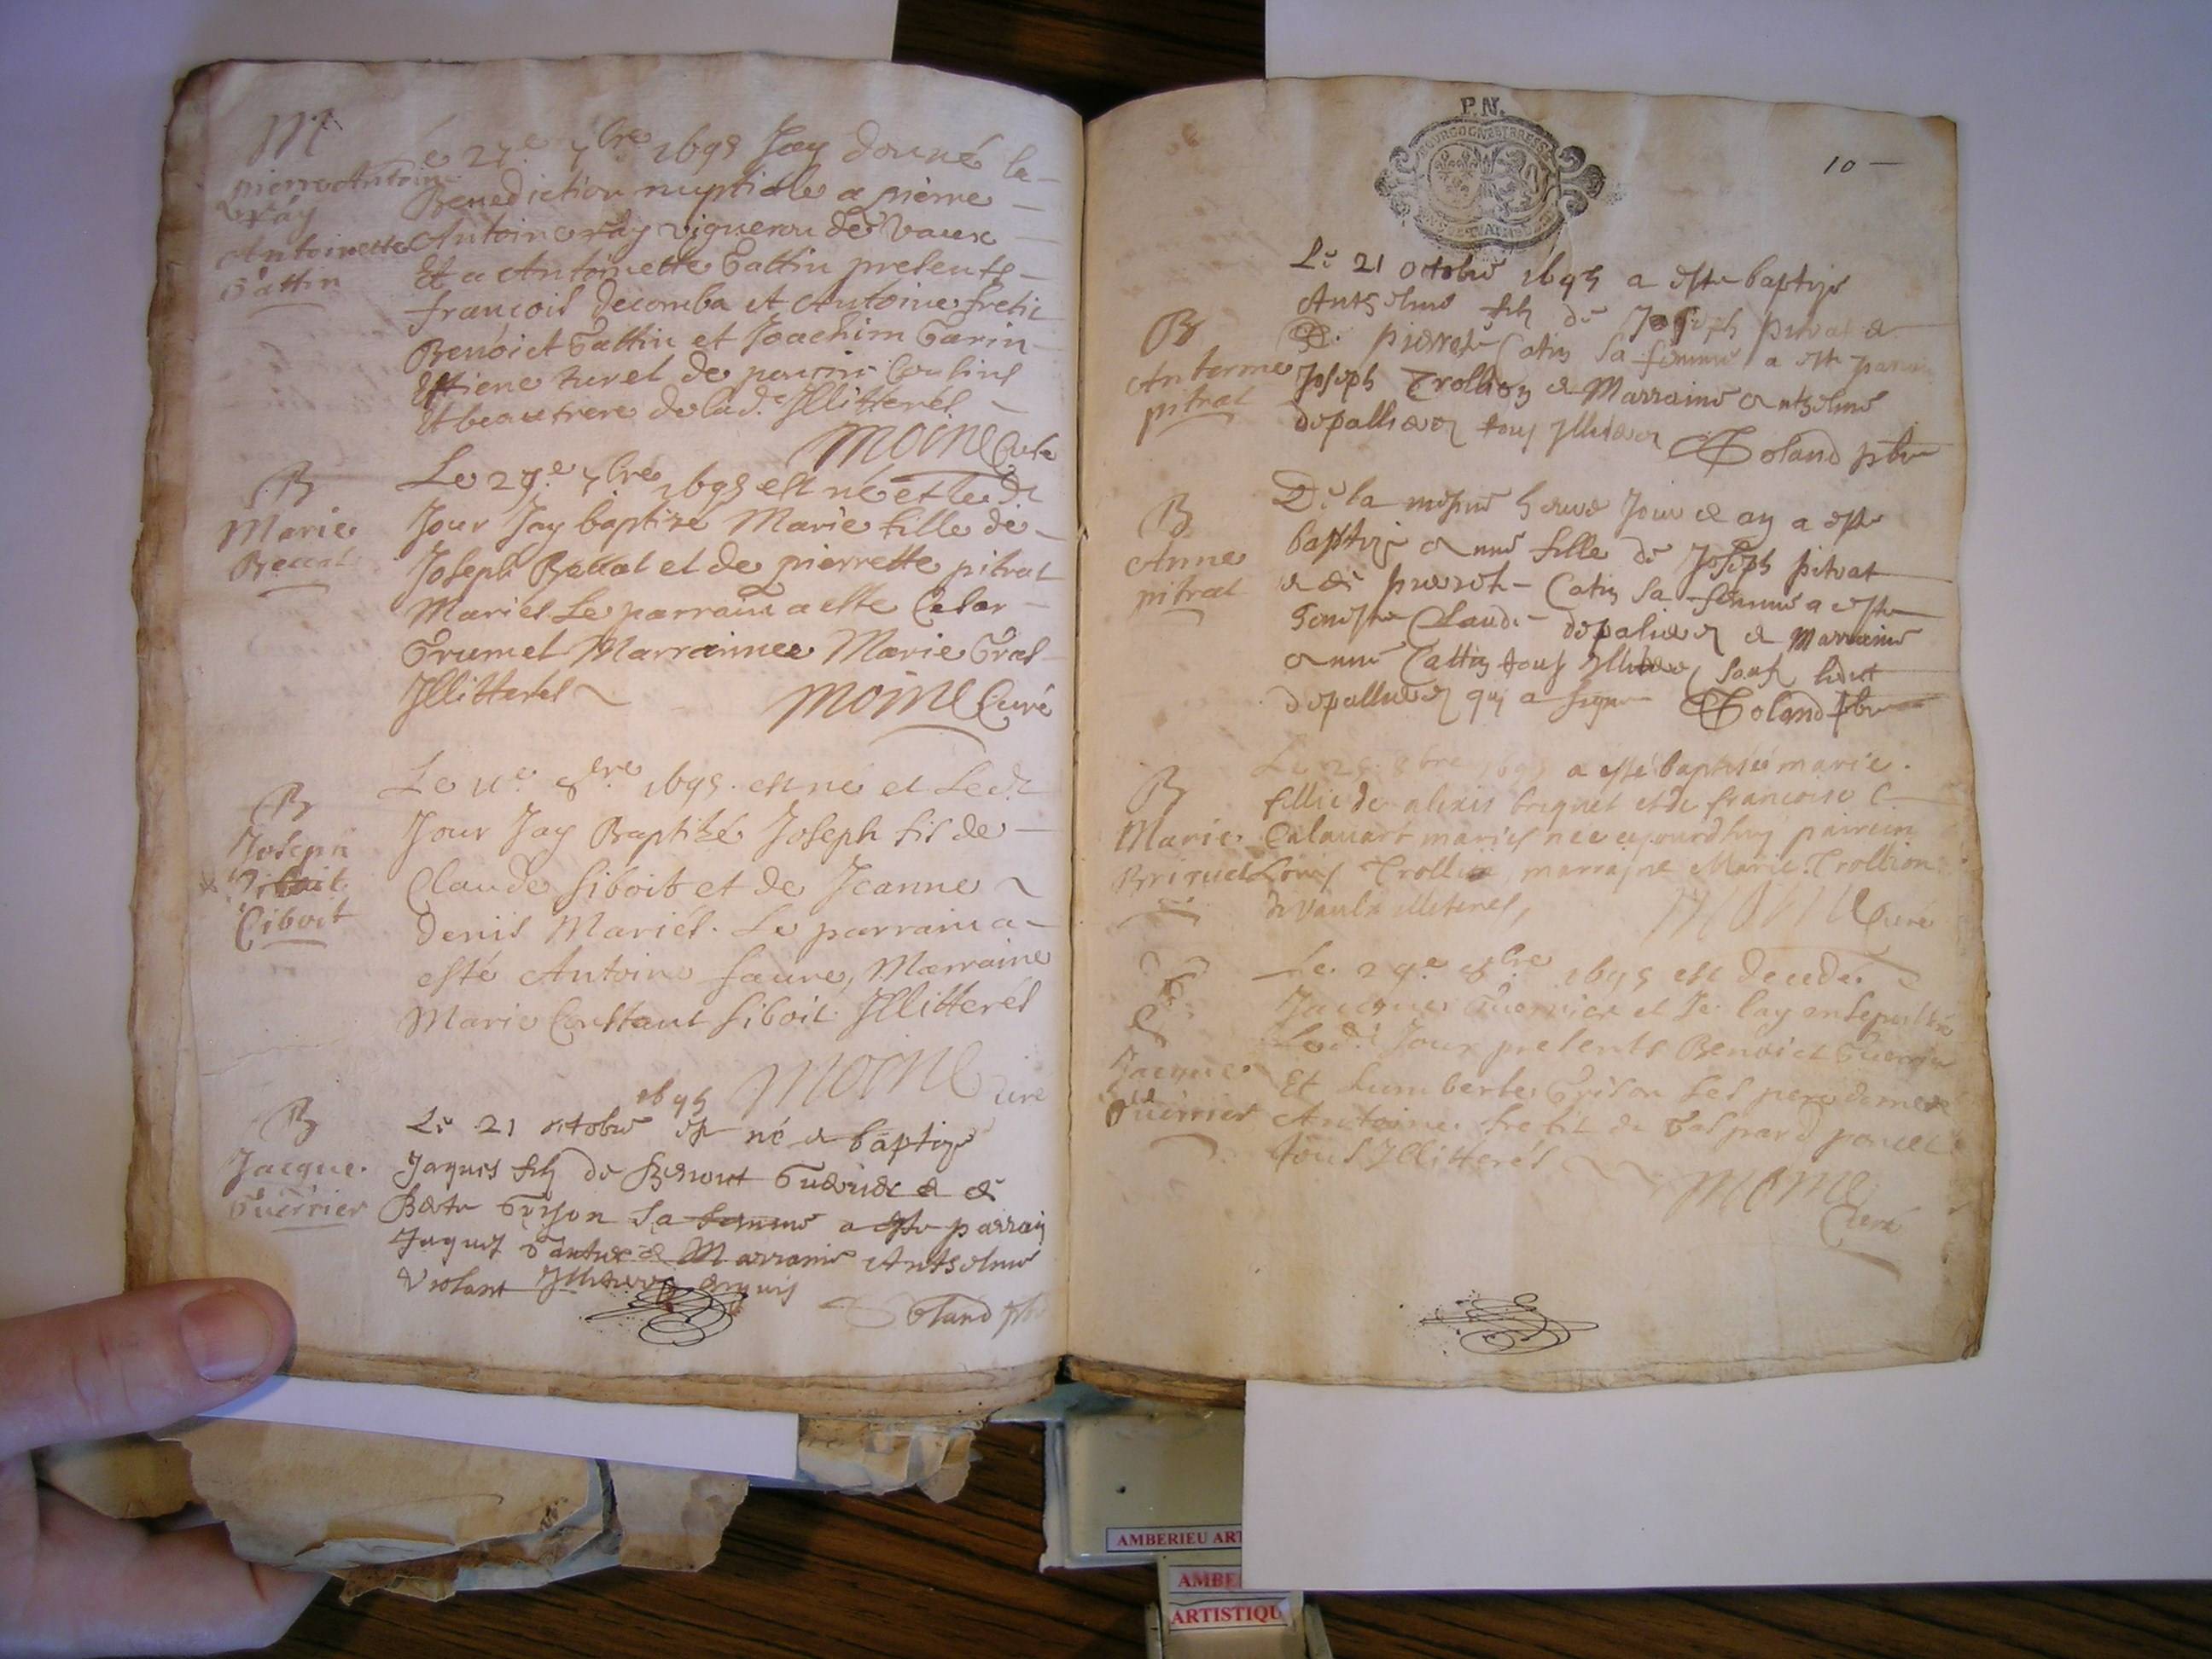 M
pierre Antoine
ray
Antoinette
Gattin
Le 27e 7bre 1695 Jay donné la
Benediction nuptiale a pierre
Antoine ray vigneron de Vaux
Et a Antoinette Gattin presents
francois decomba et Antoine fretit
Benoict Gattin et Joachim Garin
Estiene turel de Cousins
Et beaufrere de lad.e Jllitterés
Moine Curé
B
Marie
Le 29.e 7bre 1695 est né et led.
Jour Jay baptizé Marie fille de
Joseph et de pierrette pitrat
Mariés. Le parrain a esté Cesar
Grumel Marrainne Marie Gras
Jllitterés
Moine Curé
B
Joseph
Ciboit
Le 11e 8bre 1695. est né et Led.
Jour Jay Baptizé Joseph fis de
Claude Siboit et de Jeanne
denis Mariés. Le parrain a
esté Antoine faure, Marraine
Marie Constant Siboit Jllitterés
Moine Curé
B
Jacque
Guerrier
1695
Le 21 octobre est né & baptize
Jaques fils de Benoit Guerrier & de
Berte Grison sa femme a este parrain
Jaques & Marraine Antselme
Violant
Goland pbr
P.N.
10
B
Anterme
pitrat
Le 21 octobre 1695 a este baptize
Antselme fils de Joseph pitrat &
De pierrete Catin sa femme a este parain
Joseph Trollion & Marraine Antselme
depallieres tous Jlliteres
Goland pbr
B
Anne
pitrat
De la mesme heure Jour & an a este
baptize Anne fille de Joseph pitrat
& de pierrete Catin sa femme a este
Claude depalieres & Marraine
Anne Cattin tous Jlliteres sauf ledit
depallieres qui a signe Goland pbr
B
Marie
Briquet
Le 25 8bre 1695 a esté baptisée marie
fillie de alexis briquet et de francoise
mariés née aujourdhuy parrein
Louis Trollion marrayne Marie Trollion
de vaulx illiterés,
Moine Curé
Jacque
Guerrier
Le 29.e 8bre 1695 est decedé
Jacques Guerrier et Je lay ensepulturé
Led.t Jour presents Benoict Guerrier
Et humberte Grison ses pere & mere
Antoine fretit & Gaspard poncet
tous Jllitterés
Moine
Curé
AMBERIEU ART
AMBE
ARTISTIQU